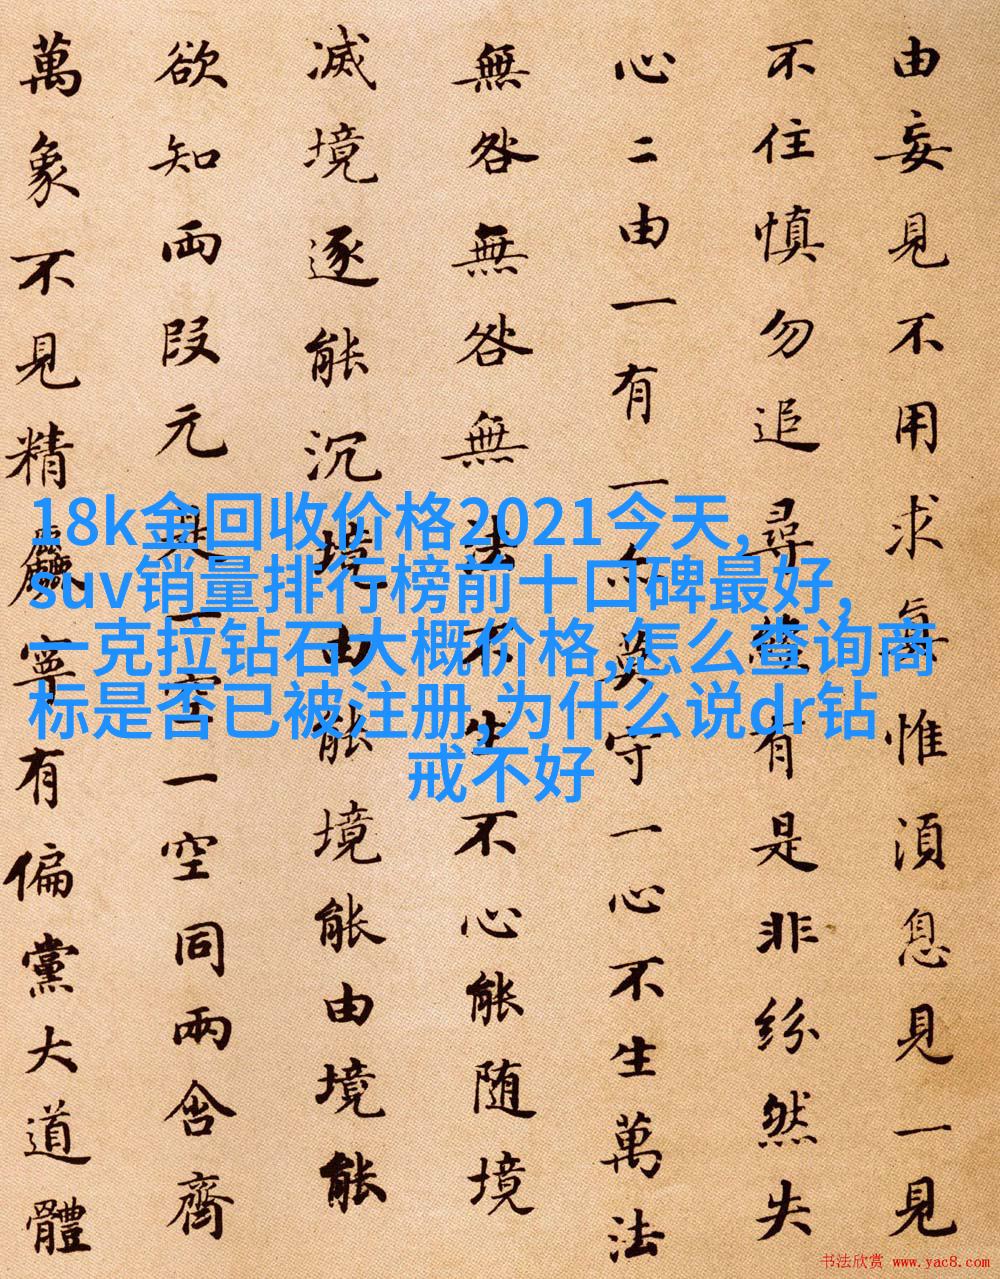 18k金回收价格2021今天,
suv销量排行榜前十口碑最好,
一克拉钻石大概价格,怎么查询商
标是否已被注册,为什么说dr钻
戒不好
由妄見不用求真惟須息見一見
不住慎勿追尋纔有是非紛然失
心二由一有一亦莫守一心不生萬法
無咎無咎無法不生不心能随境
滅境逐能沉境由能境能由境能
欲知両段元是一空一空同兩含齊
萬象不見精麤寧有偏黨大道體
书法欣赏 www.yac8.com